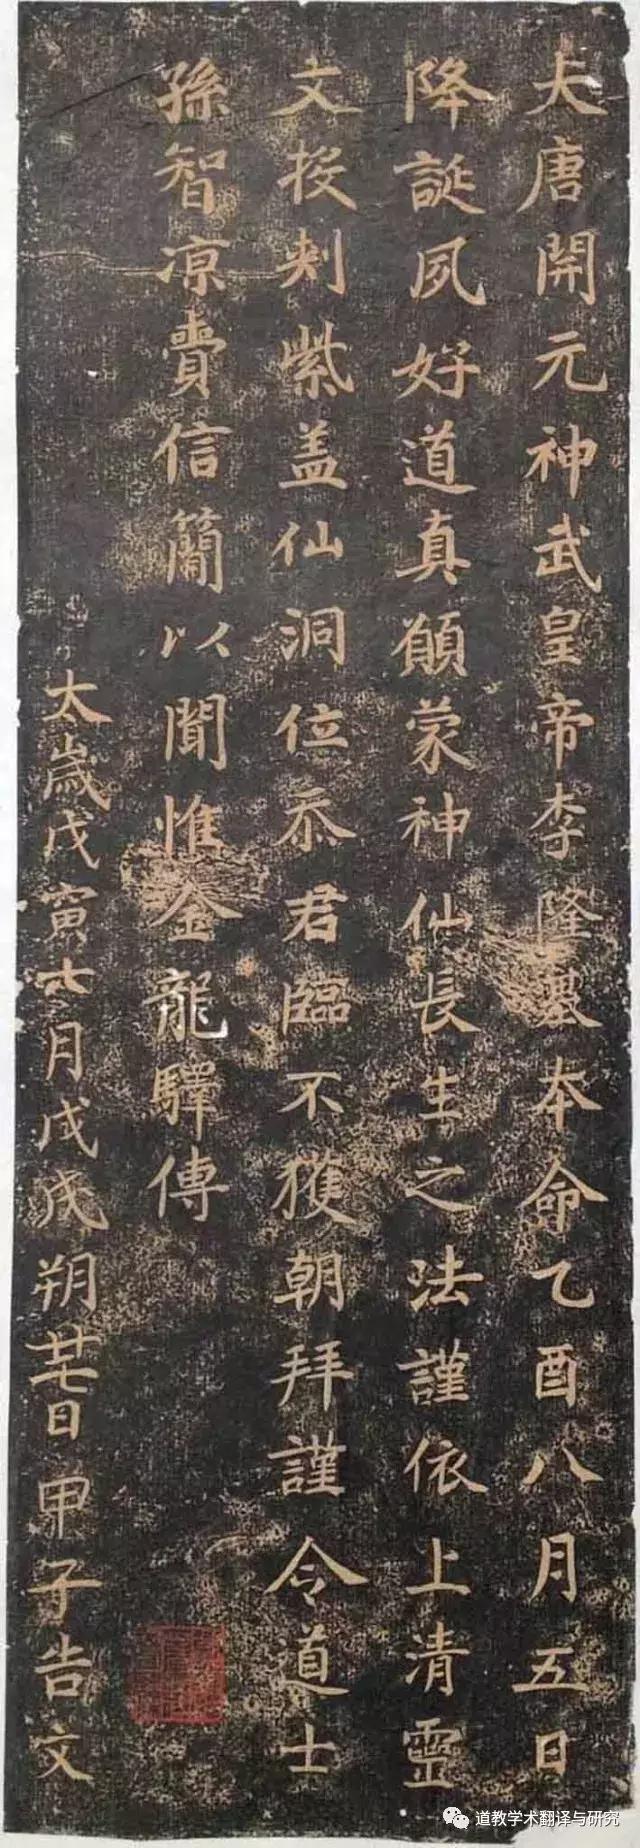 大唐開元神武皇帝李隆基本命乙酉八月五日
降誕夙好道真願蒙神仙長生之法謹依上清靈
文投刺紫盖仙洞位忝君臨不獲朝拜謹令道士
孫智凉賫信簡以聞惟金龍驛傳
太歲戊寅七月戊戌朔廿七日甲子告文
道教学术翻译与研究